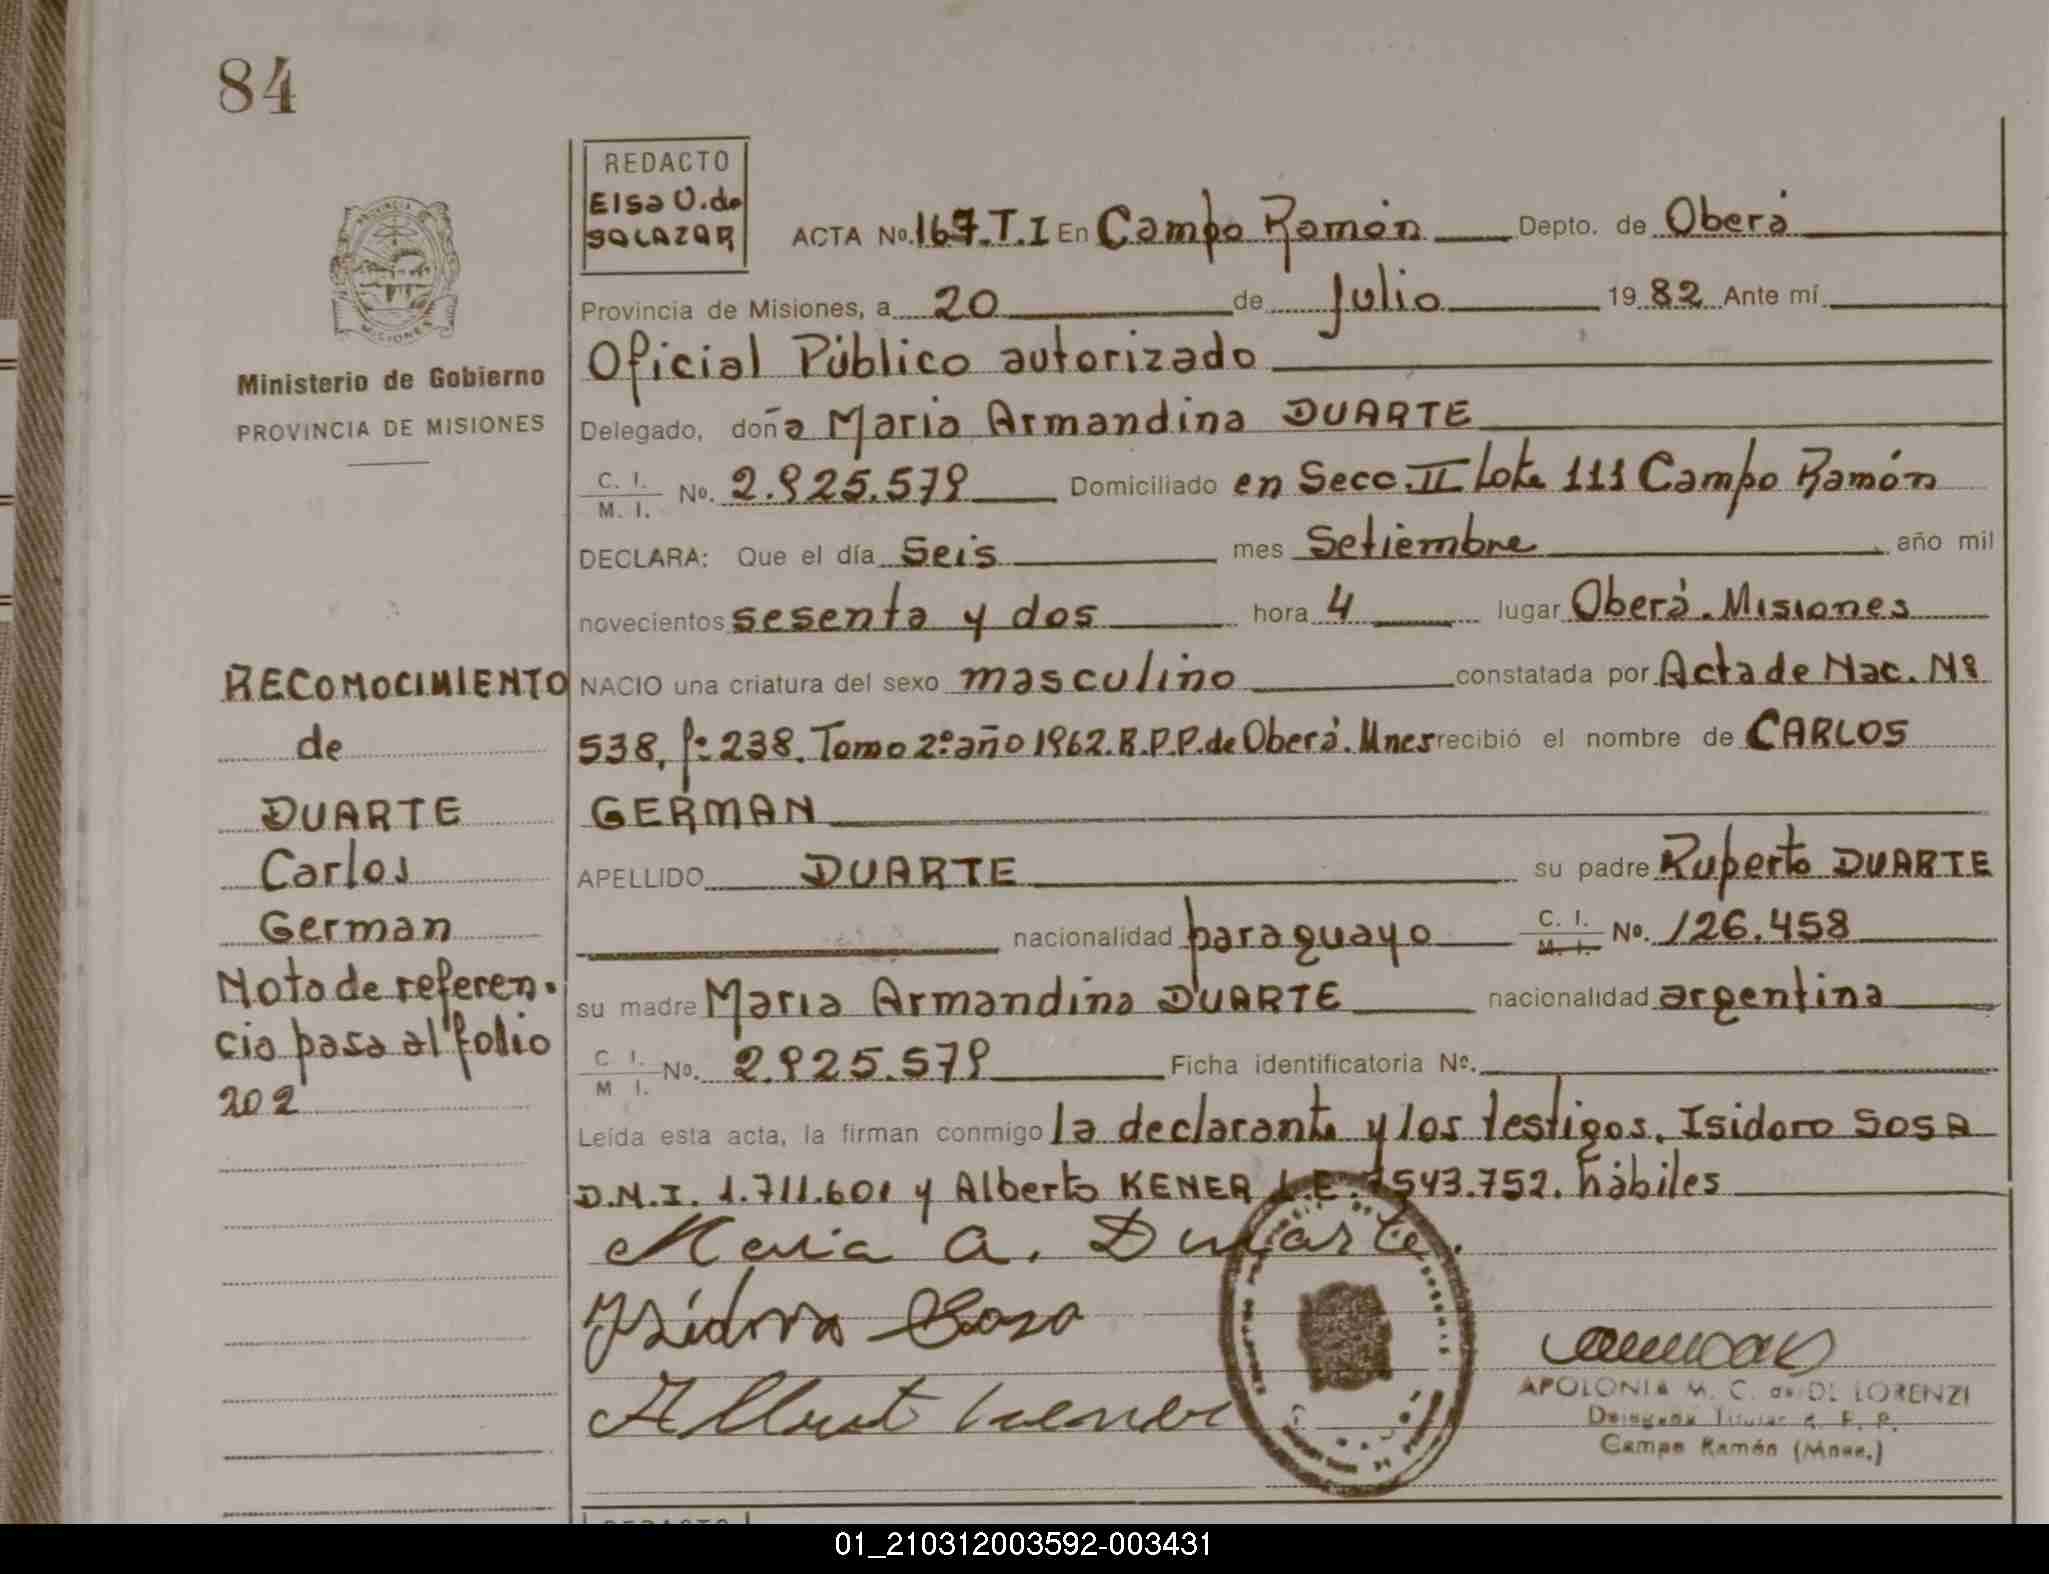 84
REDACTO
Elsa O. de
SALAZAR
ACTA No. 167.T.I En Campo Ramón Depto. de Oberá
Provincia de Misiones, a 20 de Julio 1982 Ante mí
Oficial Público autorizado
Ministerio de Gobierno
PROVINCIA DE MISIONES
Delegado, doña Maria Armandina DUARTE
C. I.
M. I. No. 2.925.579 Domiciliado en Secc. II Lote 111 Campo Ramón
DECLARA: Que el día Seis mes Setiembre año mil
novecientos sesenta y dos hora 4 lugar Oberá. Misiones
RECONOCIMIENTO
de
DUARTE
Carlos
German
Nota de referen-
cia pasa al folio
202
NACIO una criatura del sexo masculino constatada por Acta de Nac. Nº
538, fº 238. Tomo 2º año 1962. R.P.P. de Oberá. Mnes recibió el nombre de CARLOS
GERMAN
APELLIDO DUARTE su padre Ruperto DUARTE
nacionalidad paraguayo C. I. M. I. No. 126.458
su madre Maria Armandina DUARTE nacionalidad argentina
C I.
M I. No. 2.925.579 Ficha identificatoria No.
Leída esta acta, la firman conmigo la declarante y los testigos. Isidoro SOSA
D.N.I. 1.711.601 y Alberto KENER L.E. 7543.752. hábiles
Maria A. Duarte.
Isidoro Sosa
Albert Kener
APOLONIA M. C. de DE LORENZI
Delegada Titular R. P. P.
Campo Ramón (Mnes.)
REDACTO
01_210312003592-003431